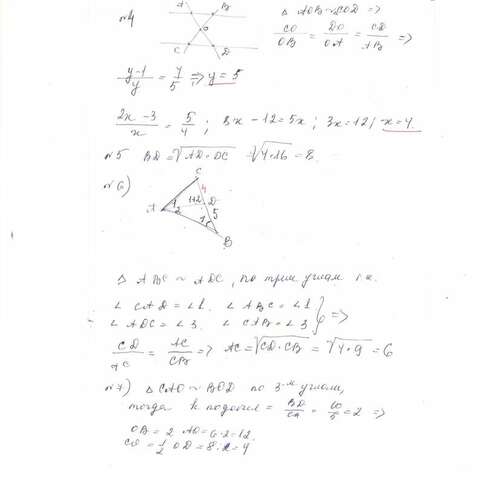 №4
A B
O
C D
△ AOB ~ COD =>
CO/OB = DO/OA = CD/AB =>
y-1/y = 4/5 => y = 5
2x-3/x = 5/4 ; 8x-12=5x ; 3x=12 / x=4.
№5 BD = √AD·DC √4·16 = 8.
№6)
C
4
A 1 1+2 D
2 5
1
B
△ ABC ~ ADC, по трем углам т.к.
∠ CAD = ∠1. ∠ ABC = ∠1
∠ ADC = ∠3. ∠ CAB = ∠3 } =>
CD/AC = AC/CB => AC = √CD·CB = √4·9 = 6
№7) △ CAO ~ BOD по 3-м углам,
тогда k подобия = BD/CA = 10/5 = 2 =>
OB = 2 AO = 6·2 = 12.
CO = 1/2 OD = 8 : 2 = 4